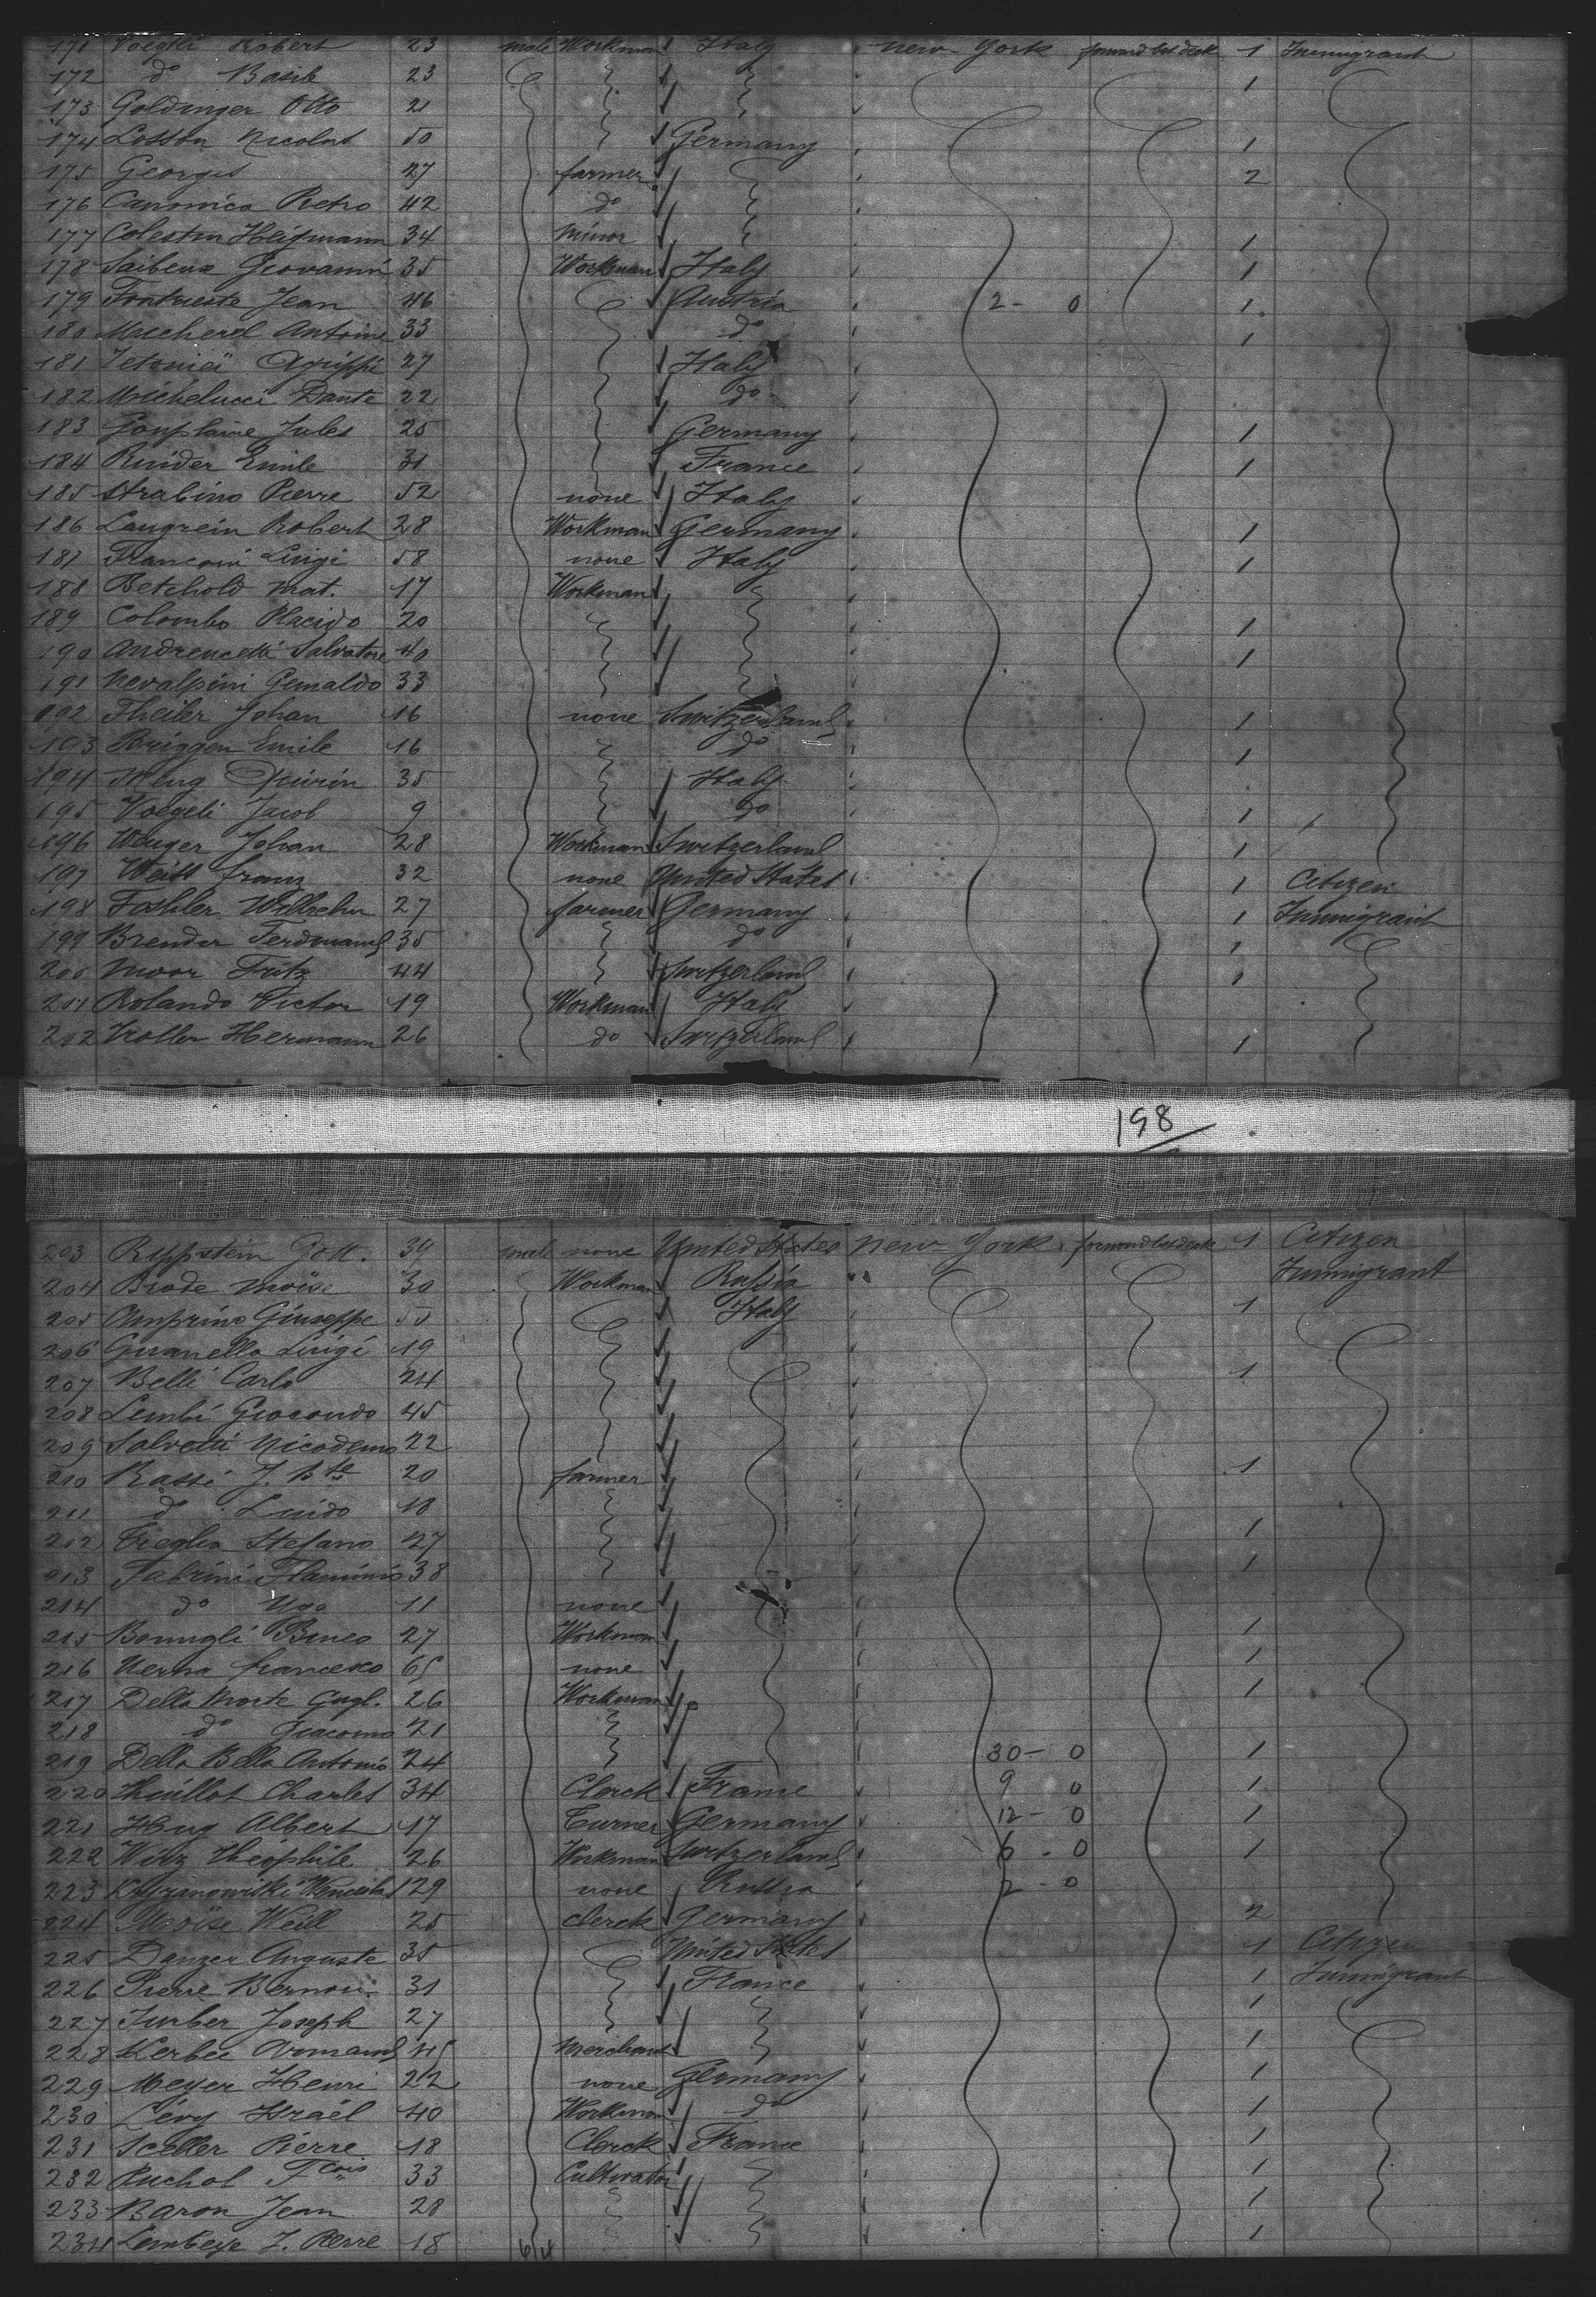 171 Voegtli Robert 23 male Workman Italy New York forward bet deck 1 Immigrant
172 do Basile 23 1
173 Goldinger Otto 21
174 Losson Nicolas 50 Germany 1
175 Georges 27 farmer 2
176 Canonica Pietro 42 do
177 Colestin Heitzmann 34 Minor 1
178 Saibena Giovanni 35 Workman Italy 1
179 Jean 46 Austria 2 - 0 1
180 Antoine 33 do 1
181 27 Italy
182 Michelucci Dante 22 do
183 Jules 25 Germany 1
184 Emile 31 France 1
185 Strabino Pierre 52 none Italy
186 Langrein Robert 28 Workman Germany 1
187 Franconi Luigi 58 none Italy 1
188 Betchold Mat. 17 Workman
189 Colombo Placido 20 1
190 Andreucetti Salvatore 40 1
191 33
192 Theiler Johan 16 none Switzerland 1
193 Briggen Emile 16 do 1
194 Quirin 35 Italy
195 Voegeli Jacob 9 do 1
196 Wenger Johan 28 Workman Switzerland 1
197 Weill franz 32 none United States 1 Citizen
198 Wilhelm 27 farmer Germany 1 Immigrant
199 Brender Ferdinand 35 do 1
200 Moor Fritz 44 Switzerland 1
201 Rolando Victor 19 Workman Italy
202 Hermann 26 do Switzerland 1
198
203 Ryppstein Gott. 39 male none United States New York forward bet deck 1 Citizen
204 Brode Moïse 30 Workman Russia Immigrant
205 Amprino Giuseppe 50 Italy 1
206 Guanella Luigi 19
207 Belli Carlo 24 1
208 Lembi Giocondo 45
209 Salvetti Nicodemo 22
210 Rassi J. Bte 20 farmer 1
211 do Luido 18
212 Treglia Stefano 27 1
213 Fabrini Flaminio 38 1
214 do Ugo 11 none
215 27 Workman 1
216 francesco 65 none 1
217 Della Morte Gugl. 26 Workman 1
218 do Giacomo 21
219 Della Bella Antonio 24 30 - 0 1
220 Thuillot Charles 34 Clerck France 9 0 1
221 Hug Albert 17 Turner Germany 12 - 0 1
222 Wirz Théophile 26 Workman Switzerland 6 - 0 1
223 29 none Russia 2 - 0
224 Moïse Weill 25 clerck Germany 2
225 Danzer Auguste 35 United States 1 Citizen
226 Pierre 31 France 1 Immigrant
227 Joseph 27 1
228 Armand 45 Merchant 1
229 Meyer Henri 22 none Germany 1
230 Lévy Israël 40 Workman do 1
231 Sceller Pierre 18 Clerck France 1
232 Ruchol Fcois 33 Cultivator 1
233 Baron Jean 28 1
234 Lembeye J. Pierre 18 1
64